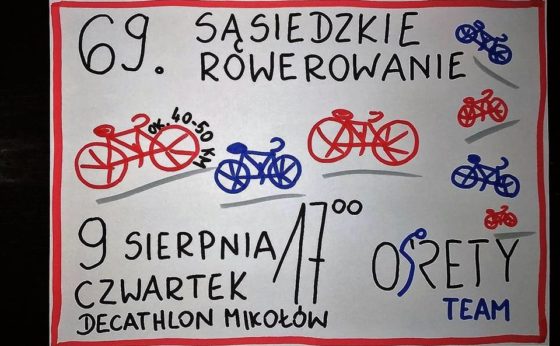 69. SĄSIEDZKIE
ROWEROWANIE
OK. 40-50 KM
9 SIERPNIA 17⁰⁰
CZWARTEK
DECATHLON MIKOŁÓW
OŚRETY
TEAM